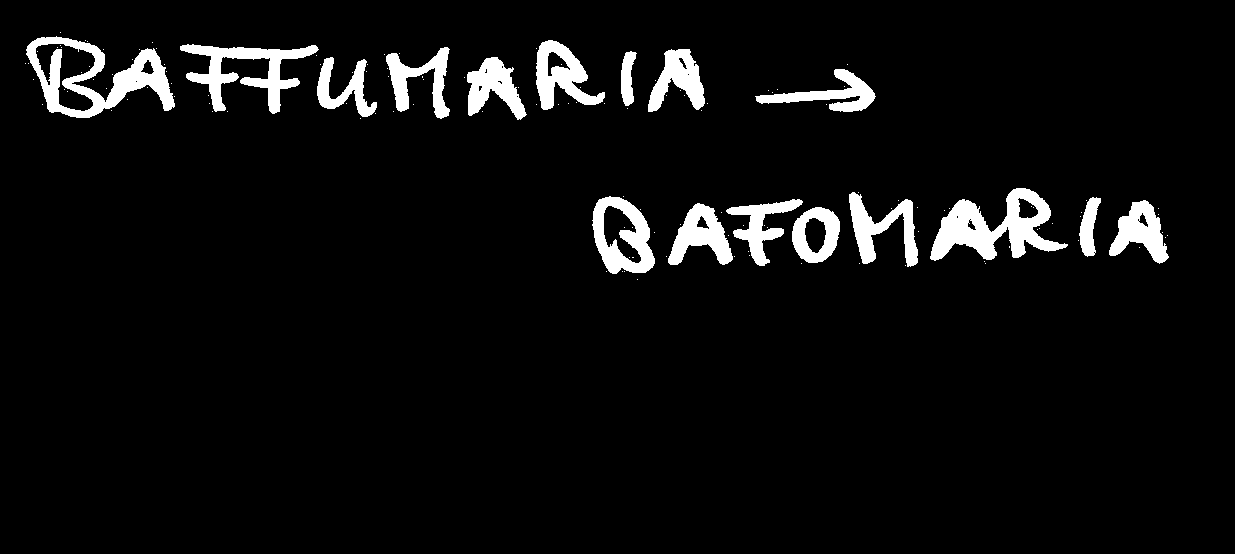 BAFFUMARIA →
BAFOMARIA